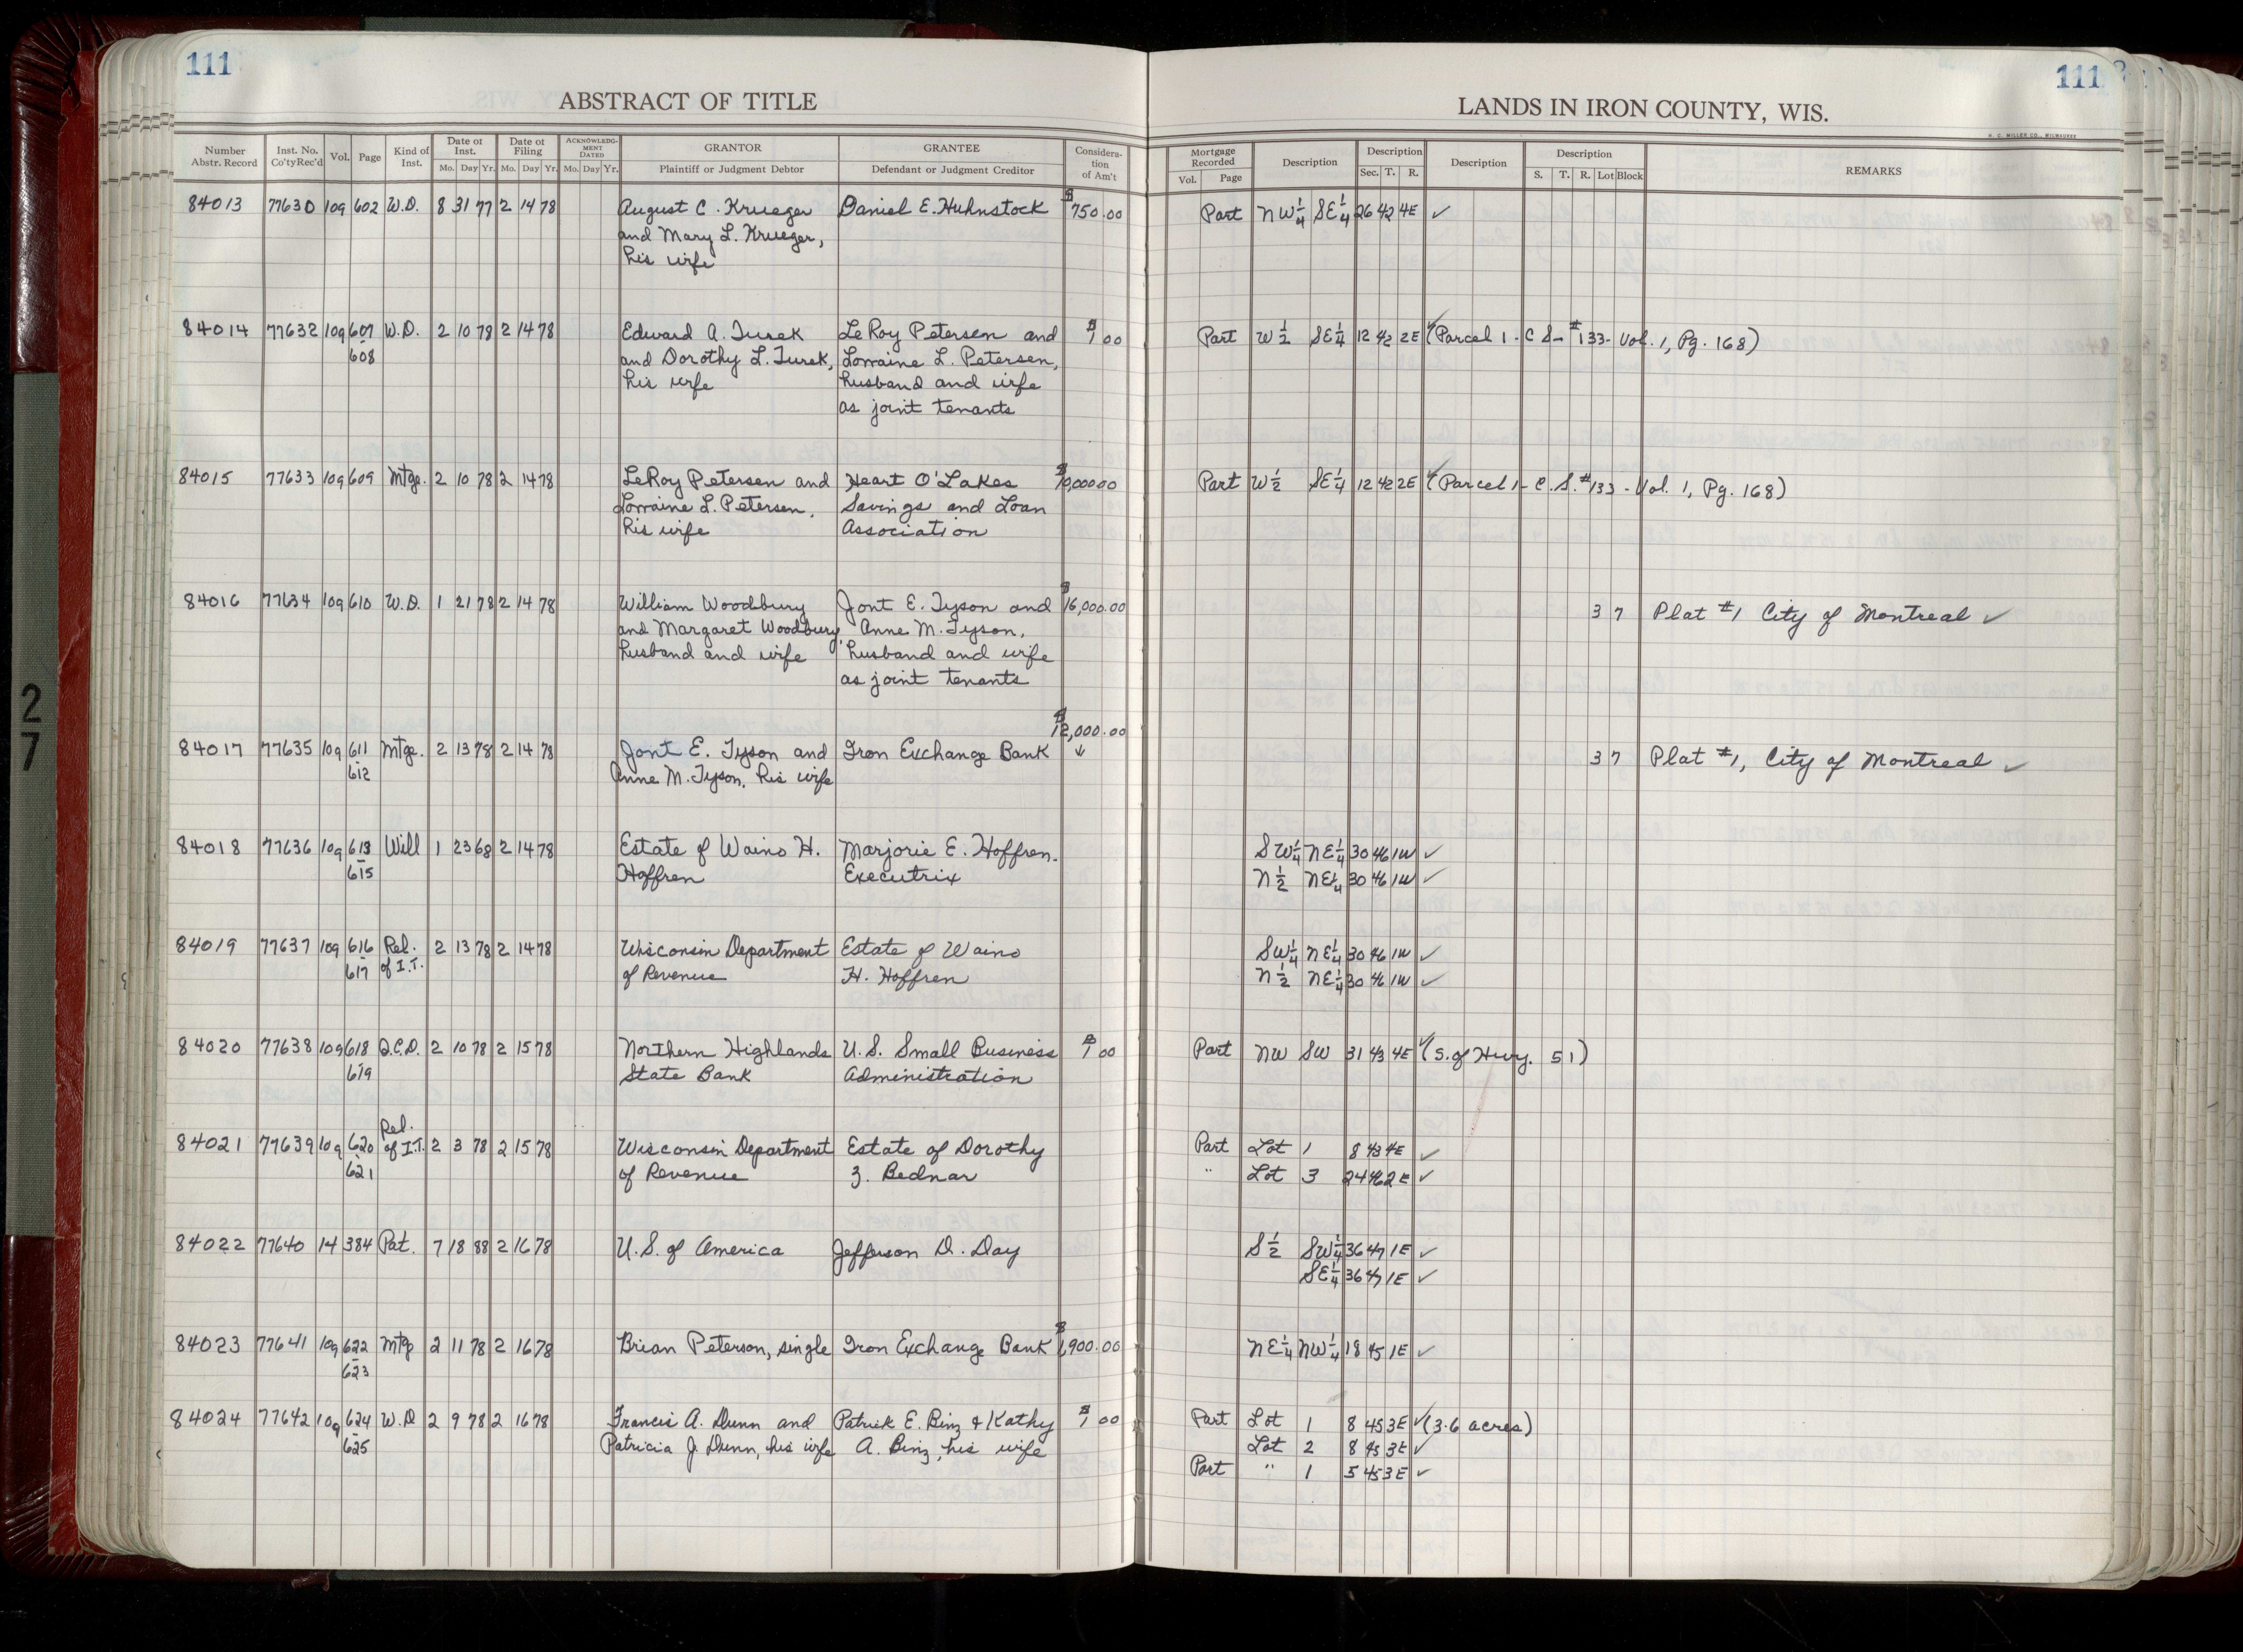 111
ABSTRACT OF TITLE
Number Abstr. Record Inst. No. Co'ty Rec'd Vol. Page Kind of Inst. Date of Inst. Mo. Day Yr. Date of Filing Mo. Day Yr. ACKNOWLEDG-MENT DATED Mo. Day Yr. GRANTOR Plaintiff or Judgment Debtor GRANTEE Defendant or Judgment Creditor Considera-tion of Am't
111
LANDS IN IRON COUNTY, WIS.
H. C. MILLER CO., MILWAUKEE
Mortgage Recorded Vol. Page Description Description Sec. T. R. Description Description S. T. R. Lot Block REMARKS
84013 77630 109 602 W.D. 8 31 77 2 14 78 August C. Krueger Daniel E. Huhnstock $750.00 Part NW 1/4 SE 1/4 26 42 4E ✓
and Mary L. Krueger,
his wife
84014 77632 109 607 W.D. 2 10 78 2 14 78 Edward A. Turek LeRoy Petersen and $1 00 Part W 1/2 SE 1/4 12 42 2E ✓ (Parcel 1 - C S - #133 - Vol. 1, Pg. 168)
- 608 and Dorothy L. Turek, Lorraine L. Petersen,
his wife husband and wife
as joint tenants
84015 77633 109 609 Mtge. 2 10 78 2 14 78 LeRoy Petersen and Heart O'Lakes $10,000 00 Part W 1/2 SE 1/4 12 42 2E ✓ (Parcel 1 - C.S. #133 - Vol. 1, Pg. 168)
Lorraine L. Petersen, Savings and Loan
his wife Association
84016 77634 109 610 W.D. 1 21 78 2 14 78 William Woodbury Jont E. Tyson and $16,000.00 3 7 Plat #1 City of Montreal ✓
and Margaret Woodbury, Anne M. Tyson,
husband and wife husband and wife
as joint tenants
$12,000.00
84017 77635 109 611 Mtge. 2 13 78 2 14 78 Jont E. Tyson and Iron Exchange Bank ↓ 3 7 Plat #1, City of Montreal ✓
- 612 Anne M. Tyson, his wife
84018 77636 109 613 Will 1 23 68 2 14 78 Estate of Waino H. Marjorie E. Hoffren - SW 1/4 NE 1/4 30 46 1W ✓
- 615 Hoffren Executrix N 1/2 NE 1/4 30 46 1W ✓
84019 77637 109 616 Rel. 2 13 78 2 14 78 Wisconsin Department Estate of Waino SW 1/4 NE 1/4 30 46 1W ✓
- 617 of I.T. of Revenue H. Hoffren N 1/2 NE 1/4 30 46 1W ✓
84020 77638 109 618 Q.C.D. 2 10 78 2 15 78 Northern Highlands U.S. Small Business $1 00 Part NW SW 31 43 4E ✓ (S. of Hwy. 51)
- 619 State Bank Administration
Rel.
84021 77639 109 620 of I.T. 2 3 78 2 15 78 Wisconsin Department Estate of Dorothy Part Lot 1 8 43 4E ✓
- 621 of Revenue Z. Bednar " Lot 3 24 46 2E ✓
84022 77640 14 384 Pat. 7 18 88 2 16 78 U.S. of America Jefferson D. Day S 1/2 SW 1/4 36 47 1E ✓
SE 1/4 36 47 1E ✓
84023 77641 109 622 Mtg 2 11 78 2 16 78 Brian Peterson, single Iron Exchange Bank $1,900.00 NE 1/4 NW 1/4 18 45 1E ✓
- 623
84024 77642 109 624 W.D 2 9 78 2 16 78 Francis A. Dunn and Patrick E. Binz & Kathy $1 00 Part Lot 1 8 45 3E ✓ (3.6 acres)
- 625 Patricia J. Dunn, his wife A. Binz, his wife Lot 2 8 45 3E ✓
Part " 1 5 45 3E ✓
27